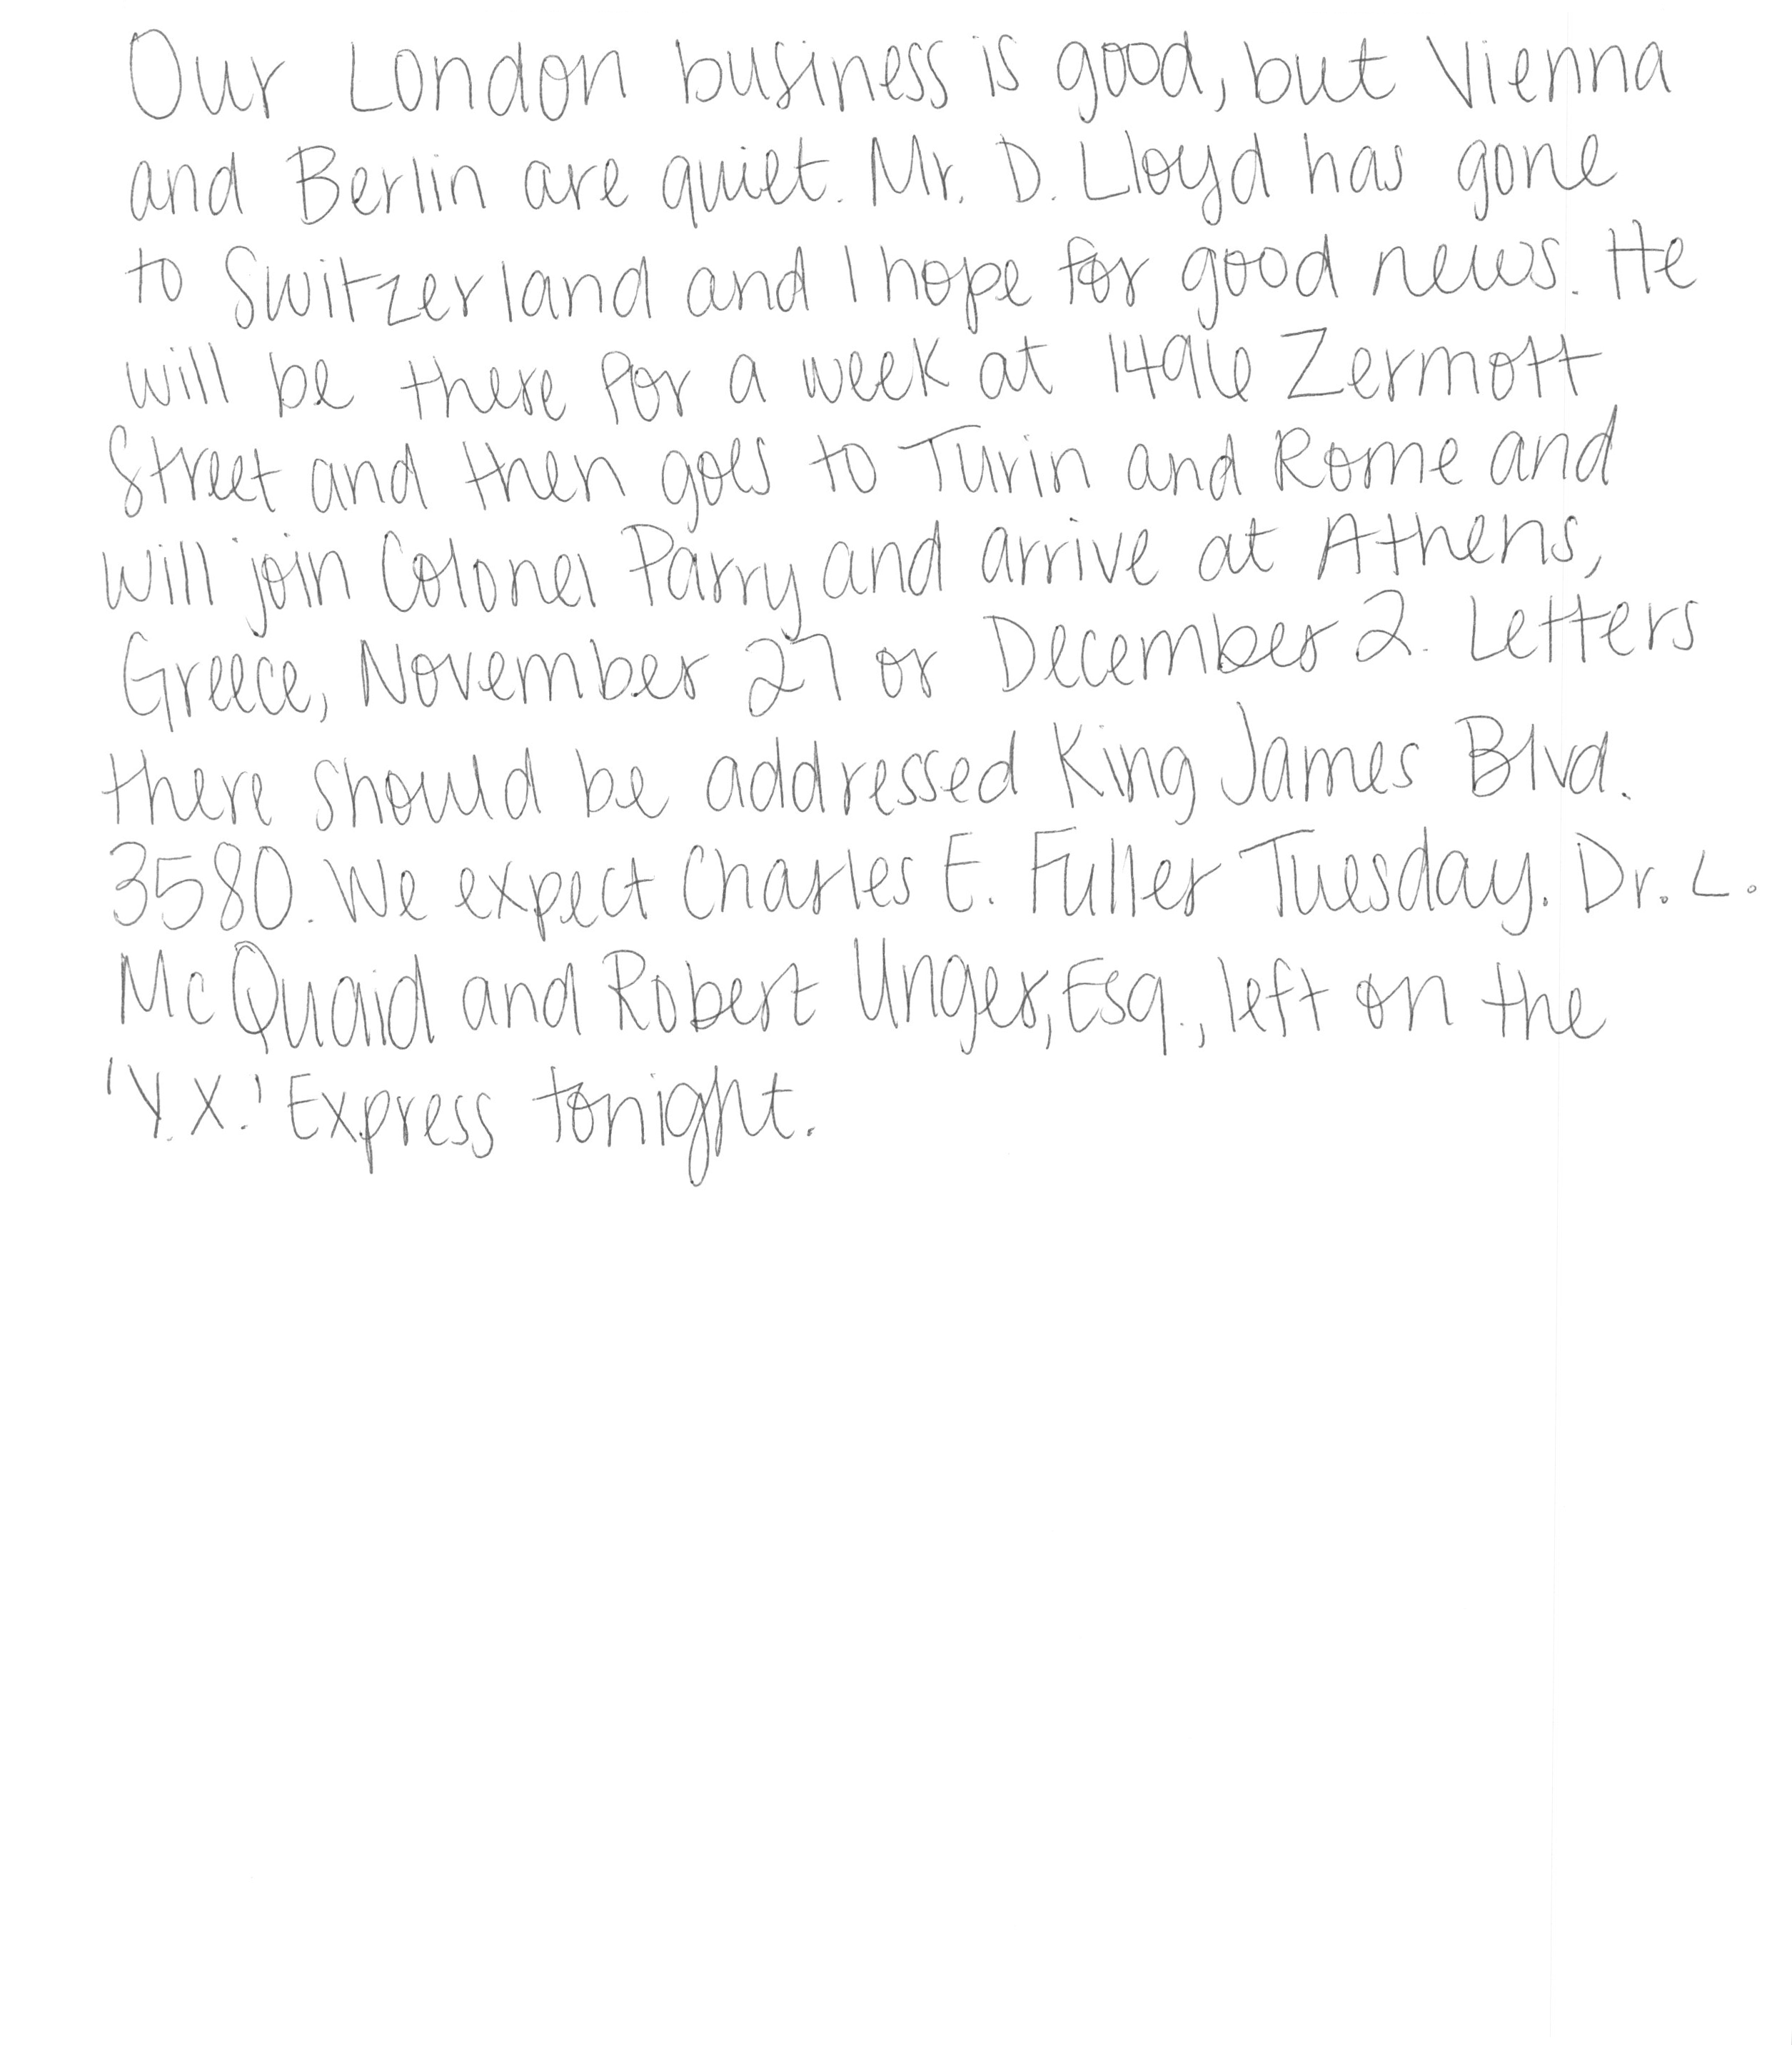 Our London business is good, but Vienna
and Berlin are quiet. Mr. D. Lloyd has gone
to Switzerland and I hope for good news. He
will be there for a week at 1496 Zermott
Street and then goes to Turin and Rome and
will join Colonel Parry and arrive at Athens,
Greece, November 27 or December 2. Letters
there should be addressed King James Blvd.
3580. We expect Charles E. Fuller Tuesday. Dr. L.
McQuaid and Robert Unger, Esq., left on the
'Y.X.' Express tonight.